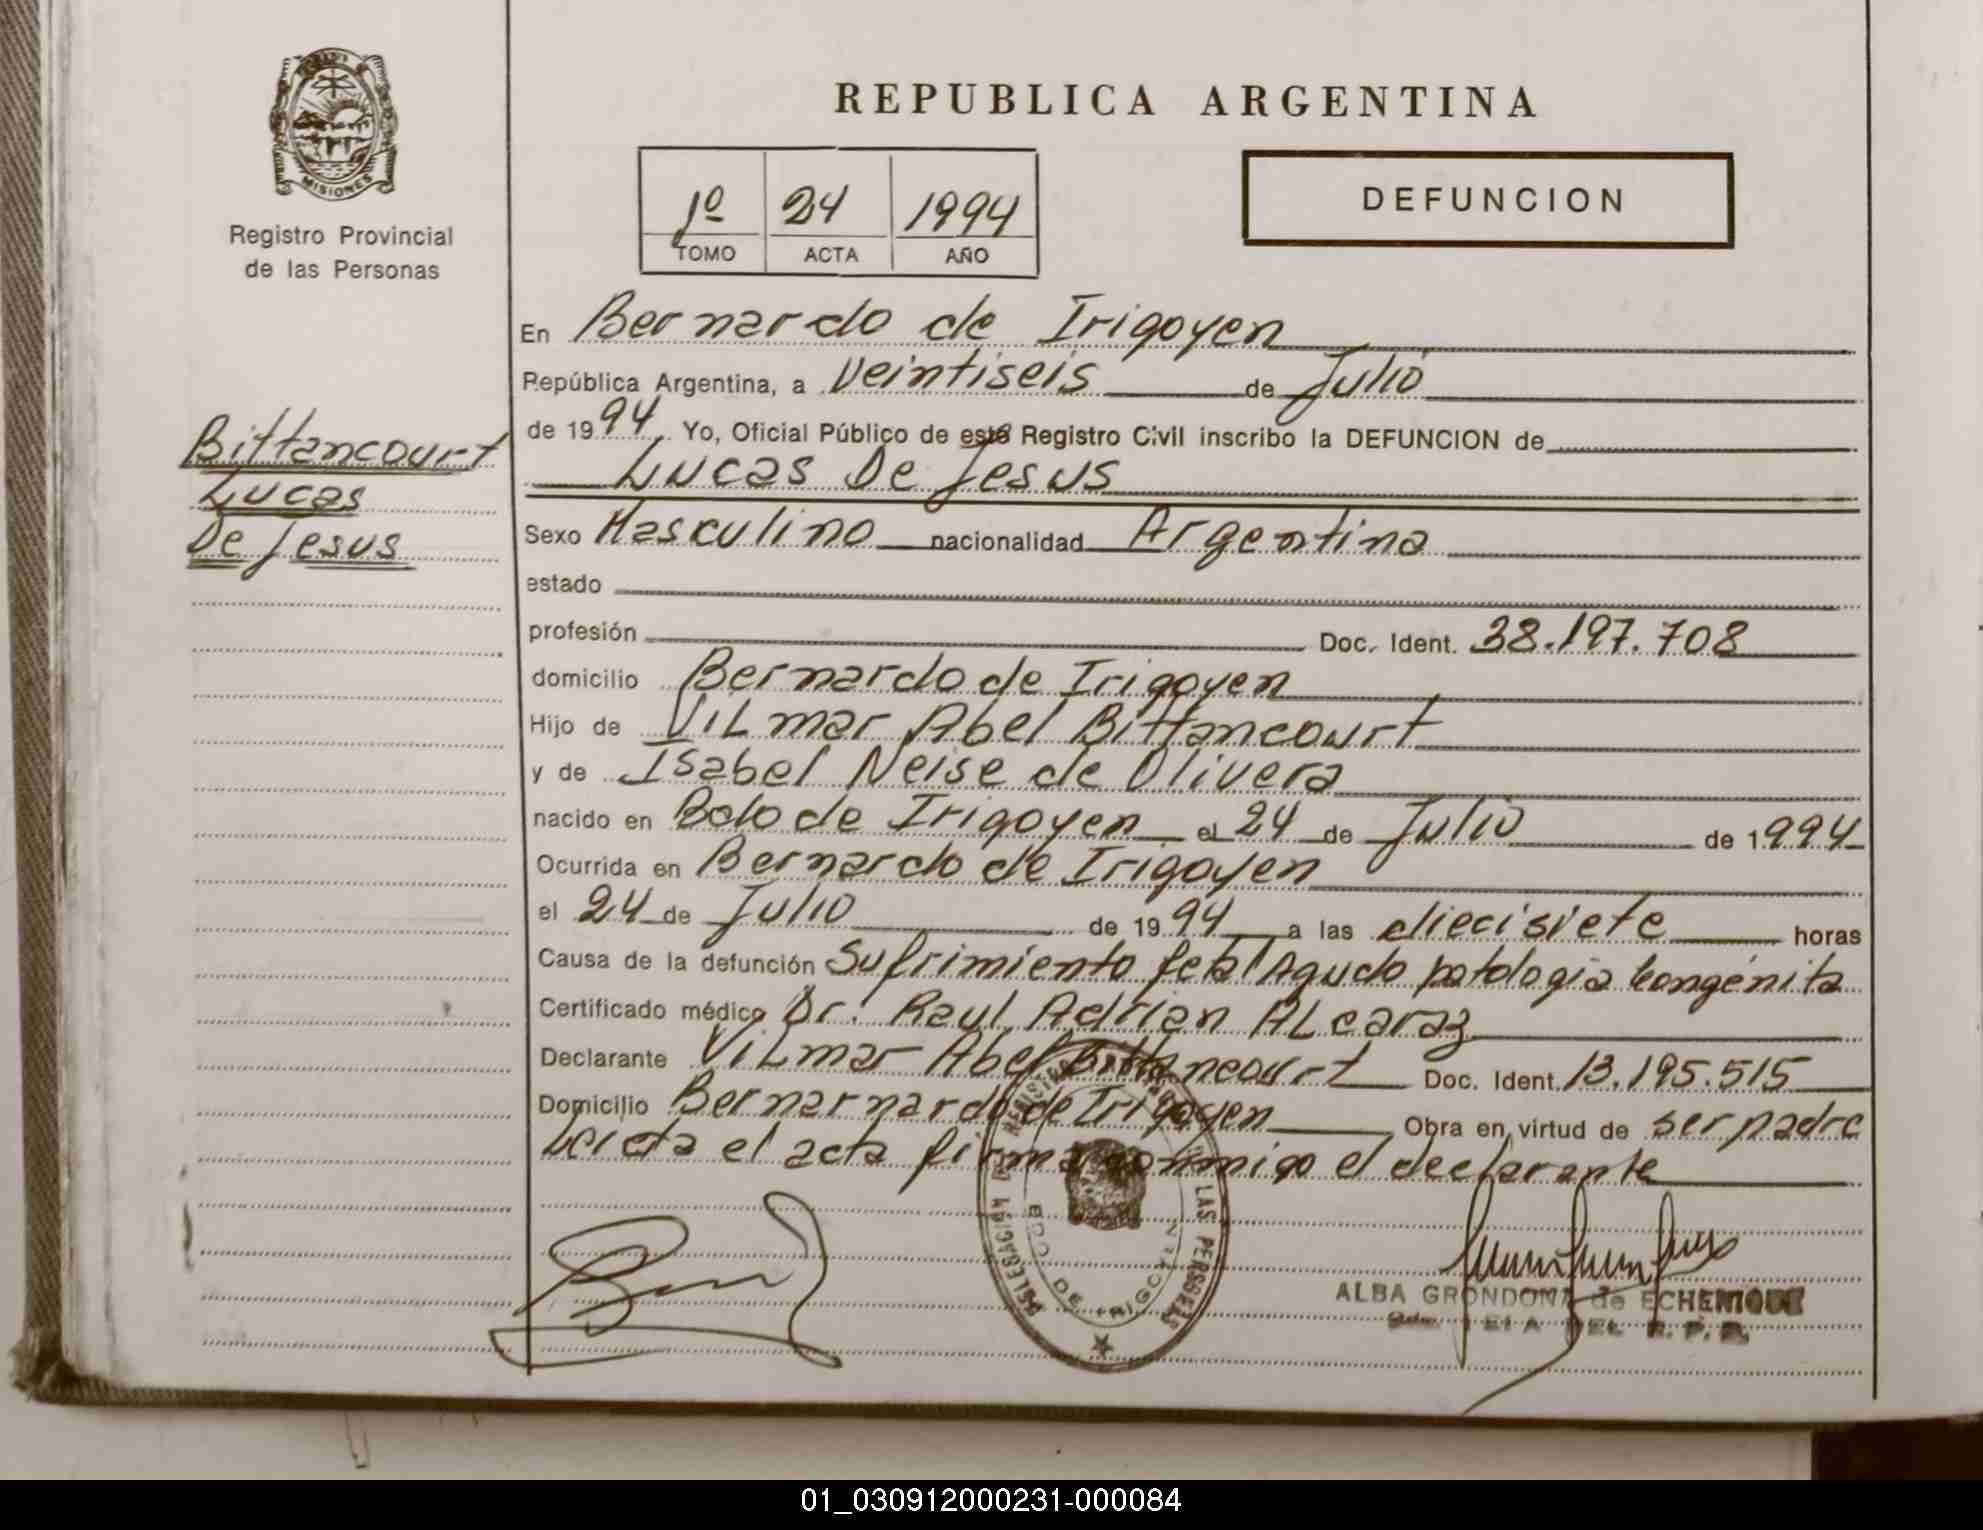 MISIONES
Registro Provincial
de las Personas
Bittancourt
Lucas
De Jesus
REPUBLICA ARGENTINA
1º 24 1994
TOMO ACTA AÑO
DEFUNCION
En Bernardo de Irigoyen
República Argentina, a Veintiseis de Julio
de 1994. Yo, Oficial Público de este Registro Civil inscribo la DEFUNCION de
Lucas De Jesus
Sexo Masculino nacionalidad Argentina
estado
profesión Doc. Ident. 38.197.708
domicilio Bernardo de Irigoyen
Hijo de Vilmar Abel Bittancourt
y de Isabel Neise de Olivera
nacido en Bdo de Irigoyen el 24 de Julio de 1994
Ocurrida en Bernardo de Irigoyen
el 24 de Julio de 1994 a las diecisiete horas
Causa de la defunción Sufrimiento fetal Agudo patologia Congénita
Certificado médico Dr. Raul Adrian Alcaraz
Declarante Vilmar Abel Bittancourt Doc. Ident. 13.195.515
Domicilio Bernarnardo de Irigoyen Obra en virtud de ser padre
Leida el acta firma conmigo el declarante
DELEGACION LAS PERSONAS
BDO. DE IRIGOYEN
ALBA GRONDONA de ECHENIQUE
DEL R. P. P.
01_030912000231-000084